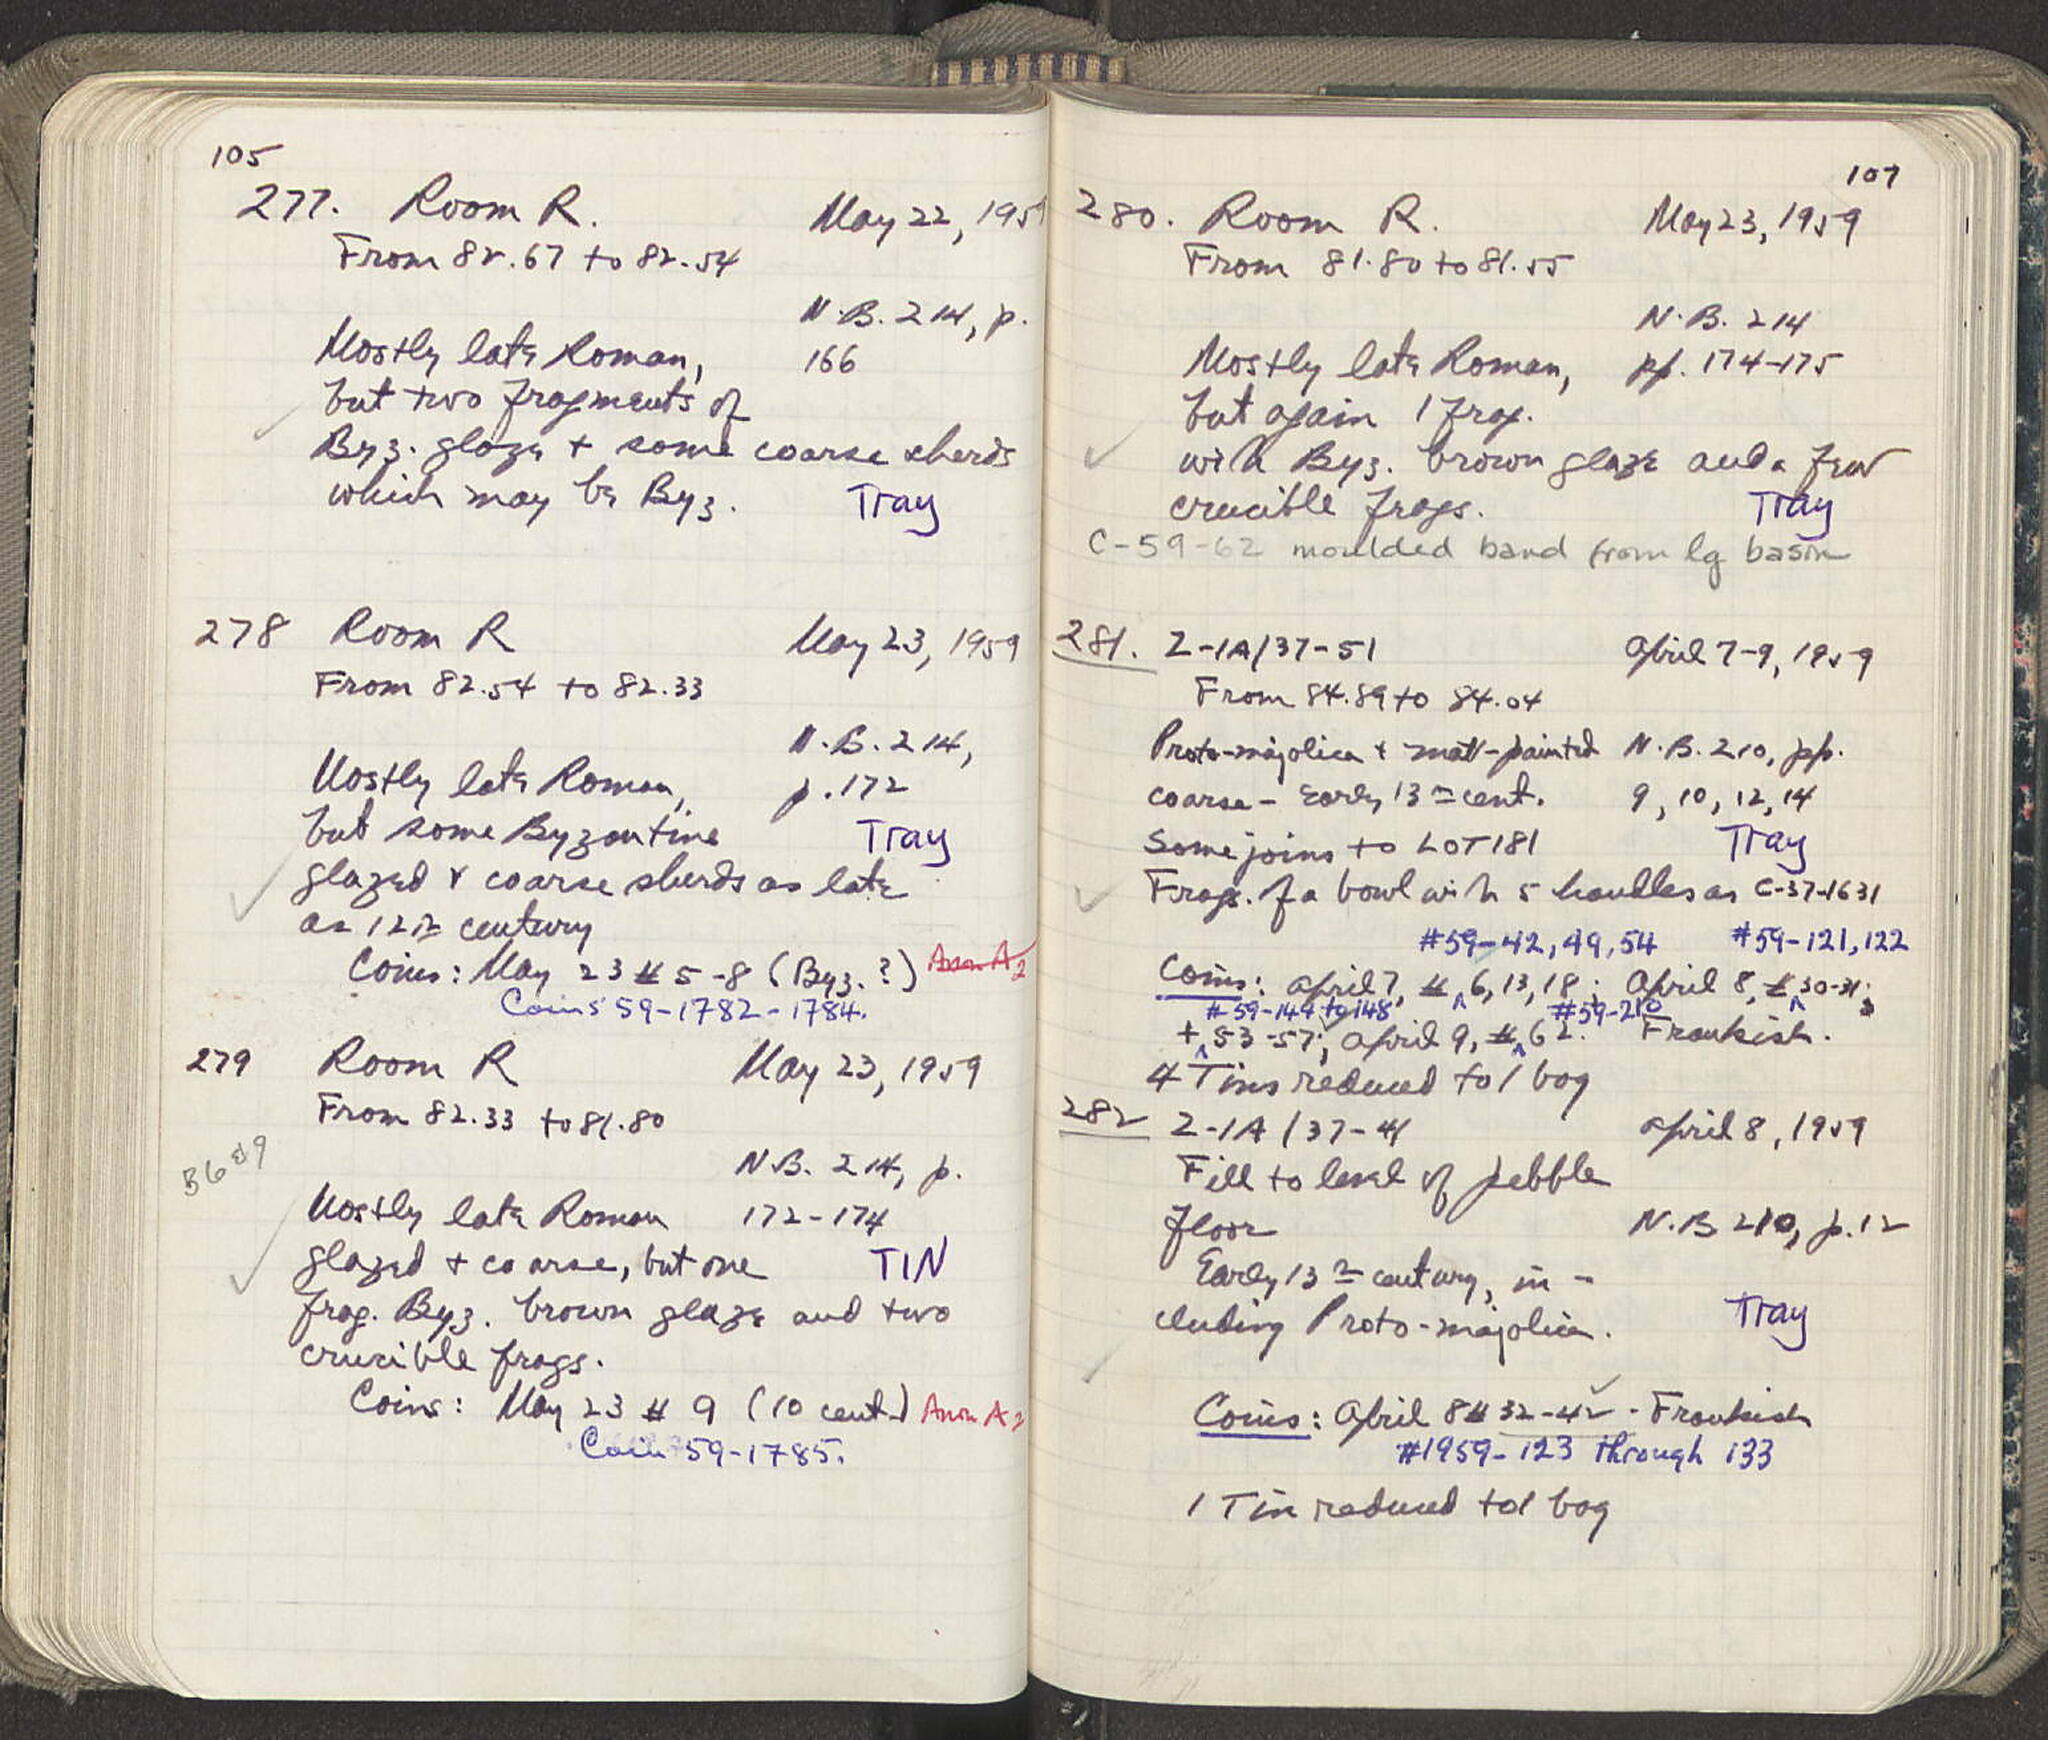 105
277. Room R. May 22, 1959
From 82.67 to 82.54
N.B. 214, p.
Mostly late Roman, 166
but two fragments of
Byz. glaze + some coarse sherds
which may be Byz. Tray
278 Room R May 23, 1959
From 82.54 to 82.33
N.B. 214,
Mostly late Roman, p. 172
but some Byzantine Tray
glazed + coarse sherds as late
as 12th century
Coins: May 23 # 5-8 (Byz.?) Anon A2
Coins 59-1782-1784.
279 Room R May 23, 1959
From 82.33 to 81.80
N.B. 214, p.
Mostly late Roman 172-174
glazed + coarse, but one TIN
frag. Byz. brown glaze and two
crucible frags.
Coins: May 23 # 9 (10 cent.) Anon A2
Coin 59-1785.
107
280. Room R. May 23, 1959
From 81.80 to 81.55
N.B. 214
Mostly late Roman, pp. 174-175
but again 1 frag.
with Byz. brown glaze and a few
crucible frags. Tray
C-59-62 moulded band from lg basin
281. Z-1A/37-51 April 7-9, 1959
From 84.89 to 84.04
Proto-majolica + matt-painted N.B. 210, pp.
coarse - Early 13th cent. 9, 10, 12, 14
Some joins to LOT 181 Tray
Frags. of a bowl with 5 handles as C-37-1631
#59-42, 49, 54 #59-121, 122
Coins: April 7, # 6, 13, 18; April 8, # 30-31;
#59-144 to 148 #59-210
+ 53-57; April 9, # 62. Frankish.
4 Tins reduced to 1 bag
282 Z-1A/37-41 April 8, 1959
Fill to level of pebble
floor N.B 210, p. 12
Early 13th century, in-
cluding Proto-majolica. Tray
Coins: April 8 # 32-42 - Frankish
#1959-123 through 133
1 Tin reduced to 1 bag